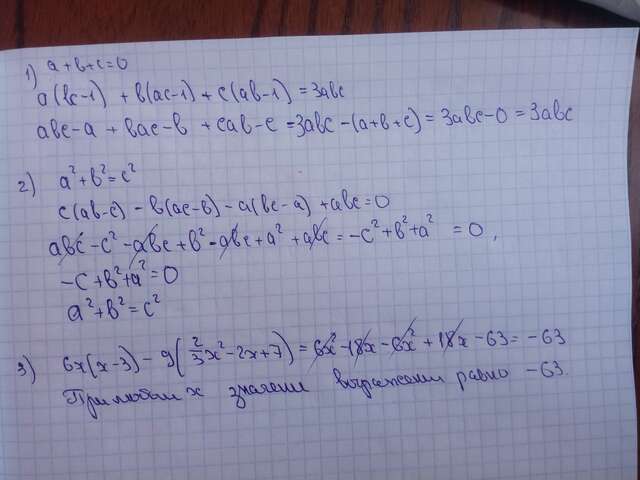 1) a+b+c=0
a(bc-1) + b(ac-1) + c(ab-1) = 3abc
abc-a + bac-b + cab-c = 3abc-(a+b+c) = 3abc-0 = 3abc
2) a²+b²=c²
c(ab-c) - b(ac-b) - a(bc-a) + abc = 0
abc-c²-abc+b²-abc+a²+abc = -c²+b²+a² = 0,
-c+b²+a²=0
a²+b²=c²
3) 6x(x-3) - 9(2/3x²-2x+7) = 6x²-18x-6x²+18x-63 = -63
При любом x значение выражения равно -63.